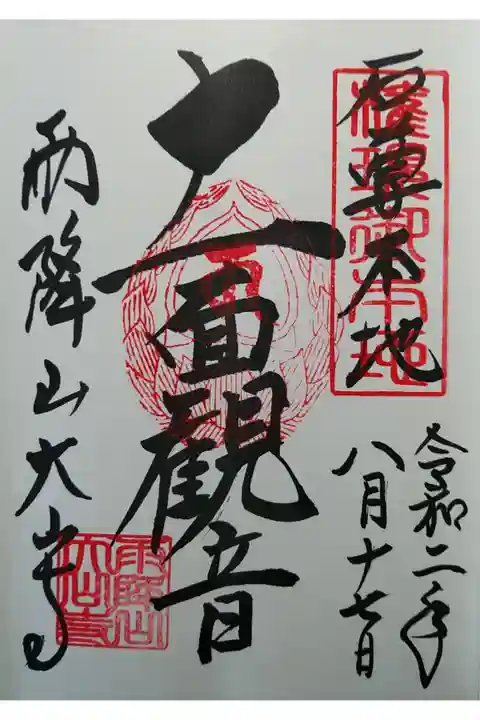 石尊本地
權現御本地
令和二年
八月十七日
十一面観音
雨降山大山寺
雨降山
大山寺